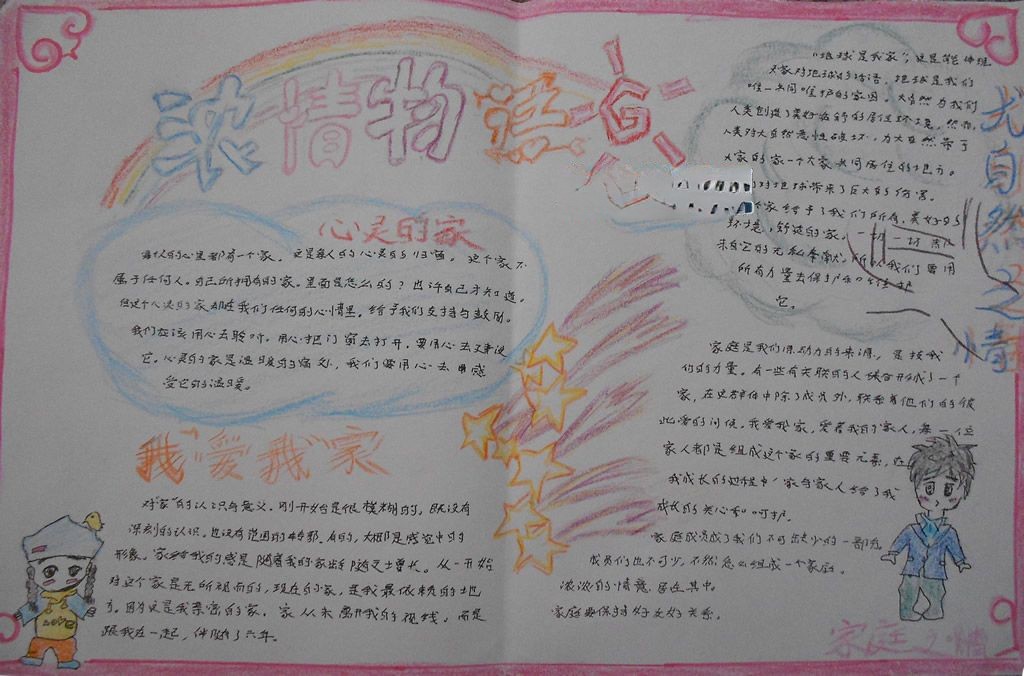 浓情物语
心灵的家
每个人的心里都有一个家。这是每人的心灵的归宿。这个家不
属于任何人。自己所拥有的家。里面是怎么的？也许自己才知道。
但这个人灵的家却在我们任何的心情里。给予我们支持与鼓励。
我们应该用心去聆听。用心把门窗去打开。要用心去
它。心灵的家是温暖的，我们要用心去感
受它的温暖。
我"爱我"家
对"家"的认识与意义。刚开始是很模糊的，既没有
深刻的认识。也没有范围的。有的，大都是感觉中的
形象。家给我的感是随着我的家与随之增长。从一开始
对这个家是无所视而的，现在的家，是我最依赖的地
方。因为这是我亲密的家。家从未离开我的视线。而是
跟我在一起，伴随了六年。
"地球是我家"，这是能体现
大家对地球的话语，地球是我们
唯一共同维护的家园。大自然为我们
人类创造了美好的居住环境。然而，
人类对大自然恶性破坏，为大自然带了
大家的家一个大家共同居住的地方。
对地球带来了巨大的伤害。
家给予了我们所有，美好的
环境，舒适的家。一切一切
来自它的无私奉献。所以我们要用
所有力量去保护和
它。
尤自然之情
家庭是我们原动力的来源，是我我
们的力量。有一些有关联的人组合形成了一个
家，在这部份中除了成员外，联系着他们的彼
此爱的问候。我爱我家，爱着我的家人，每一位
家人都是组成这个家的重要元素，在
我成长的过程中，家与家人给了我
成长的关心和呵护。
家庭成员成了我们不可缺少的一部份
成员们也不可少，不然怎么组成一个家庭。
浓浓的情意，居在其中。
家庭要保持好友好关系。
家庭之情